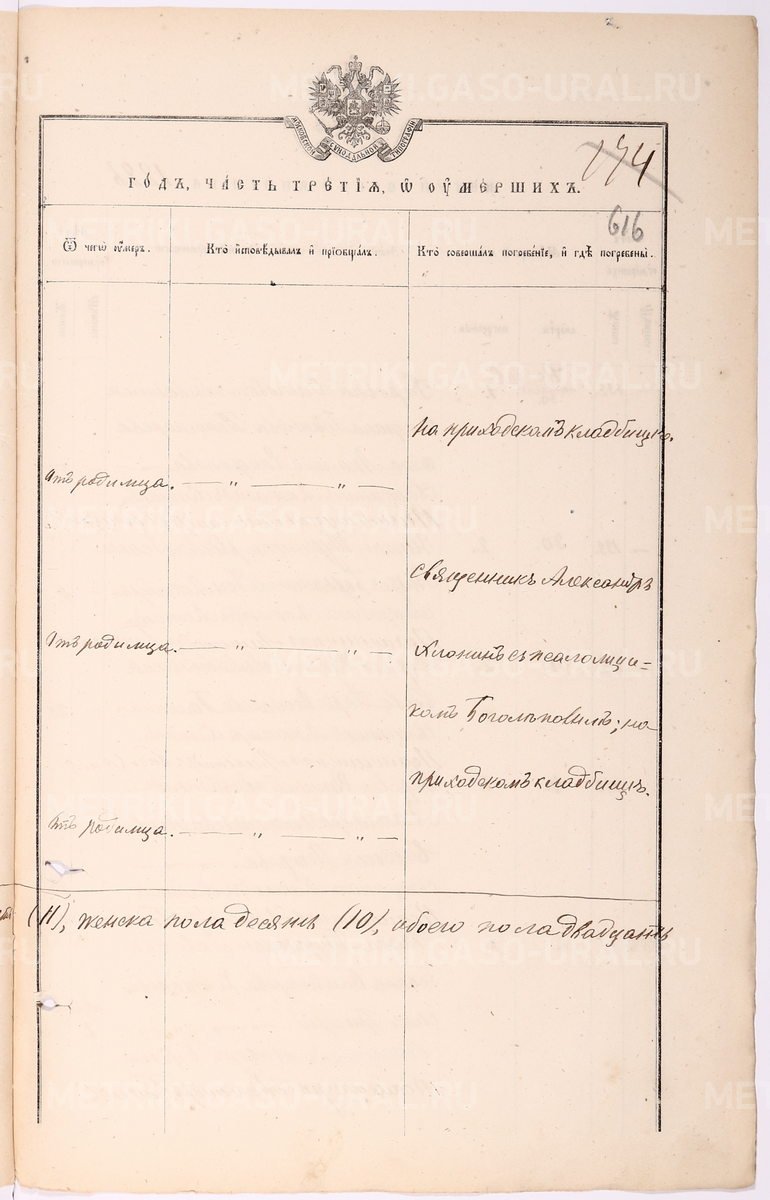 МОСКОВСКОЙ СѴНОДАЛЬНОЙ ТИПОГРАФІИ
174
ГОДЪ, ЧАСТЬ ТРЕТІЯ, Ѿ ОУМЕРШИХЪ.
616
Ѿ чегѡ оумеръ.
Кто исповѣдывалъ и пріобщалъ.
Кто совершалъ погребеніе, и гдѣ погребены.
на приходскомъ кладбищѣ.
Отъ родимца. — " — " —
Священникъ Александръ
Отъ родимца. — " — " —
Хлонинъ съ псаломщи-
комъ Боголѣповымъ; на
приходскомъ кладбищѣ.
Отъ родимца. — " — " —
(11), женска пола десять (10), обоего пола двадцать
METRIKI.GASO-URAL.RU